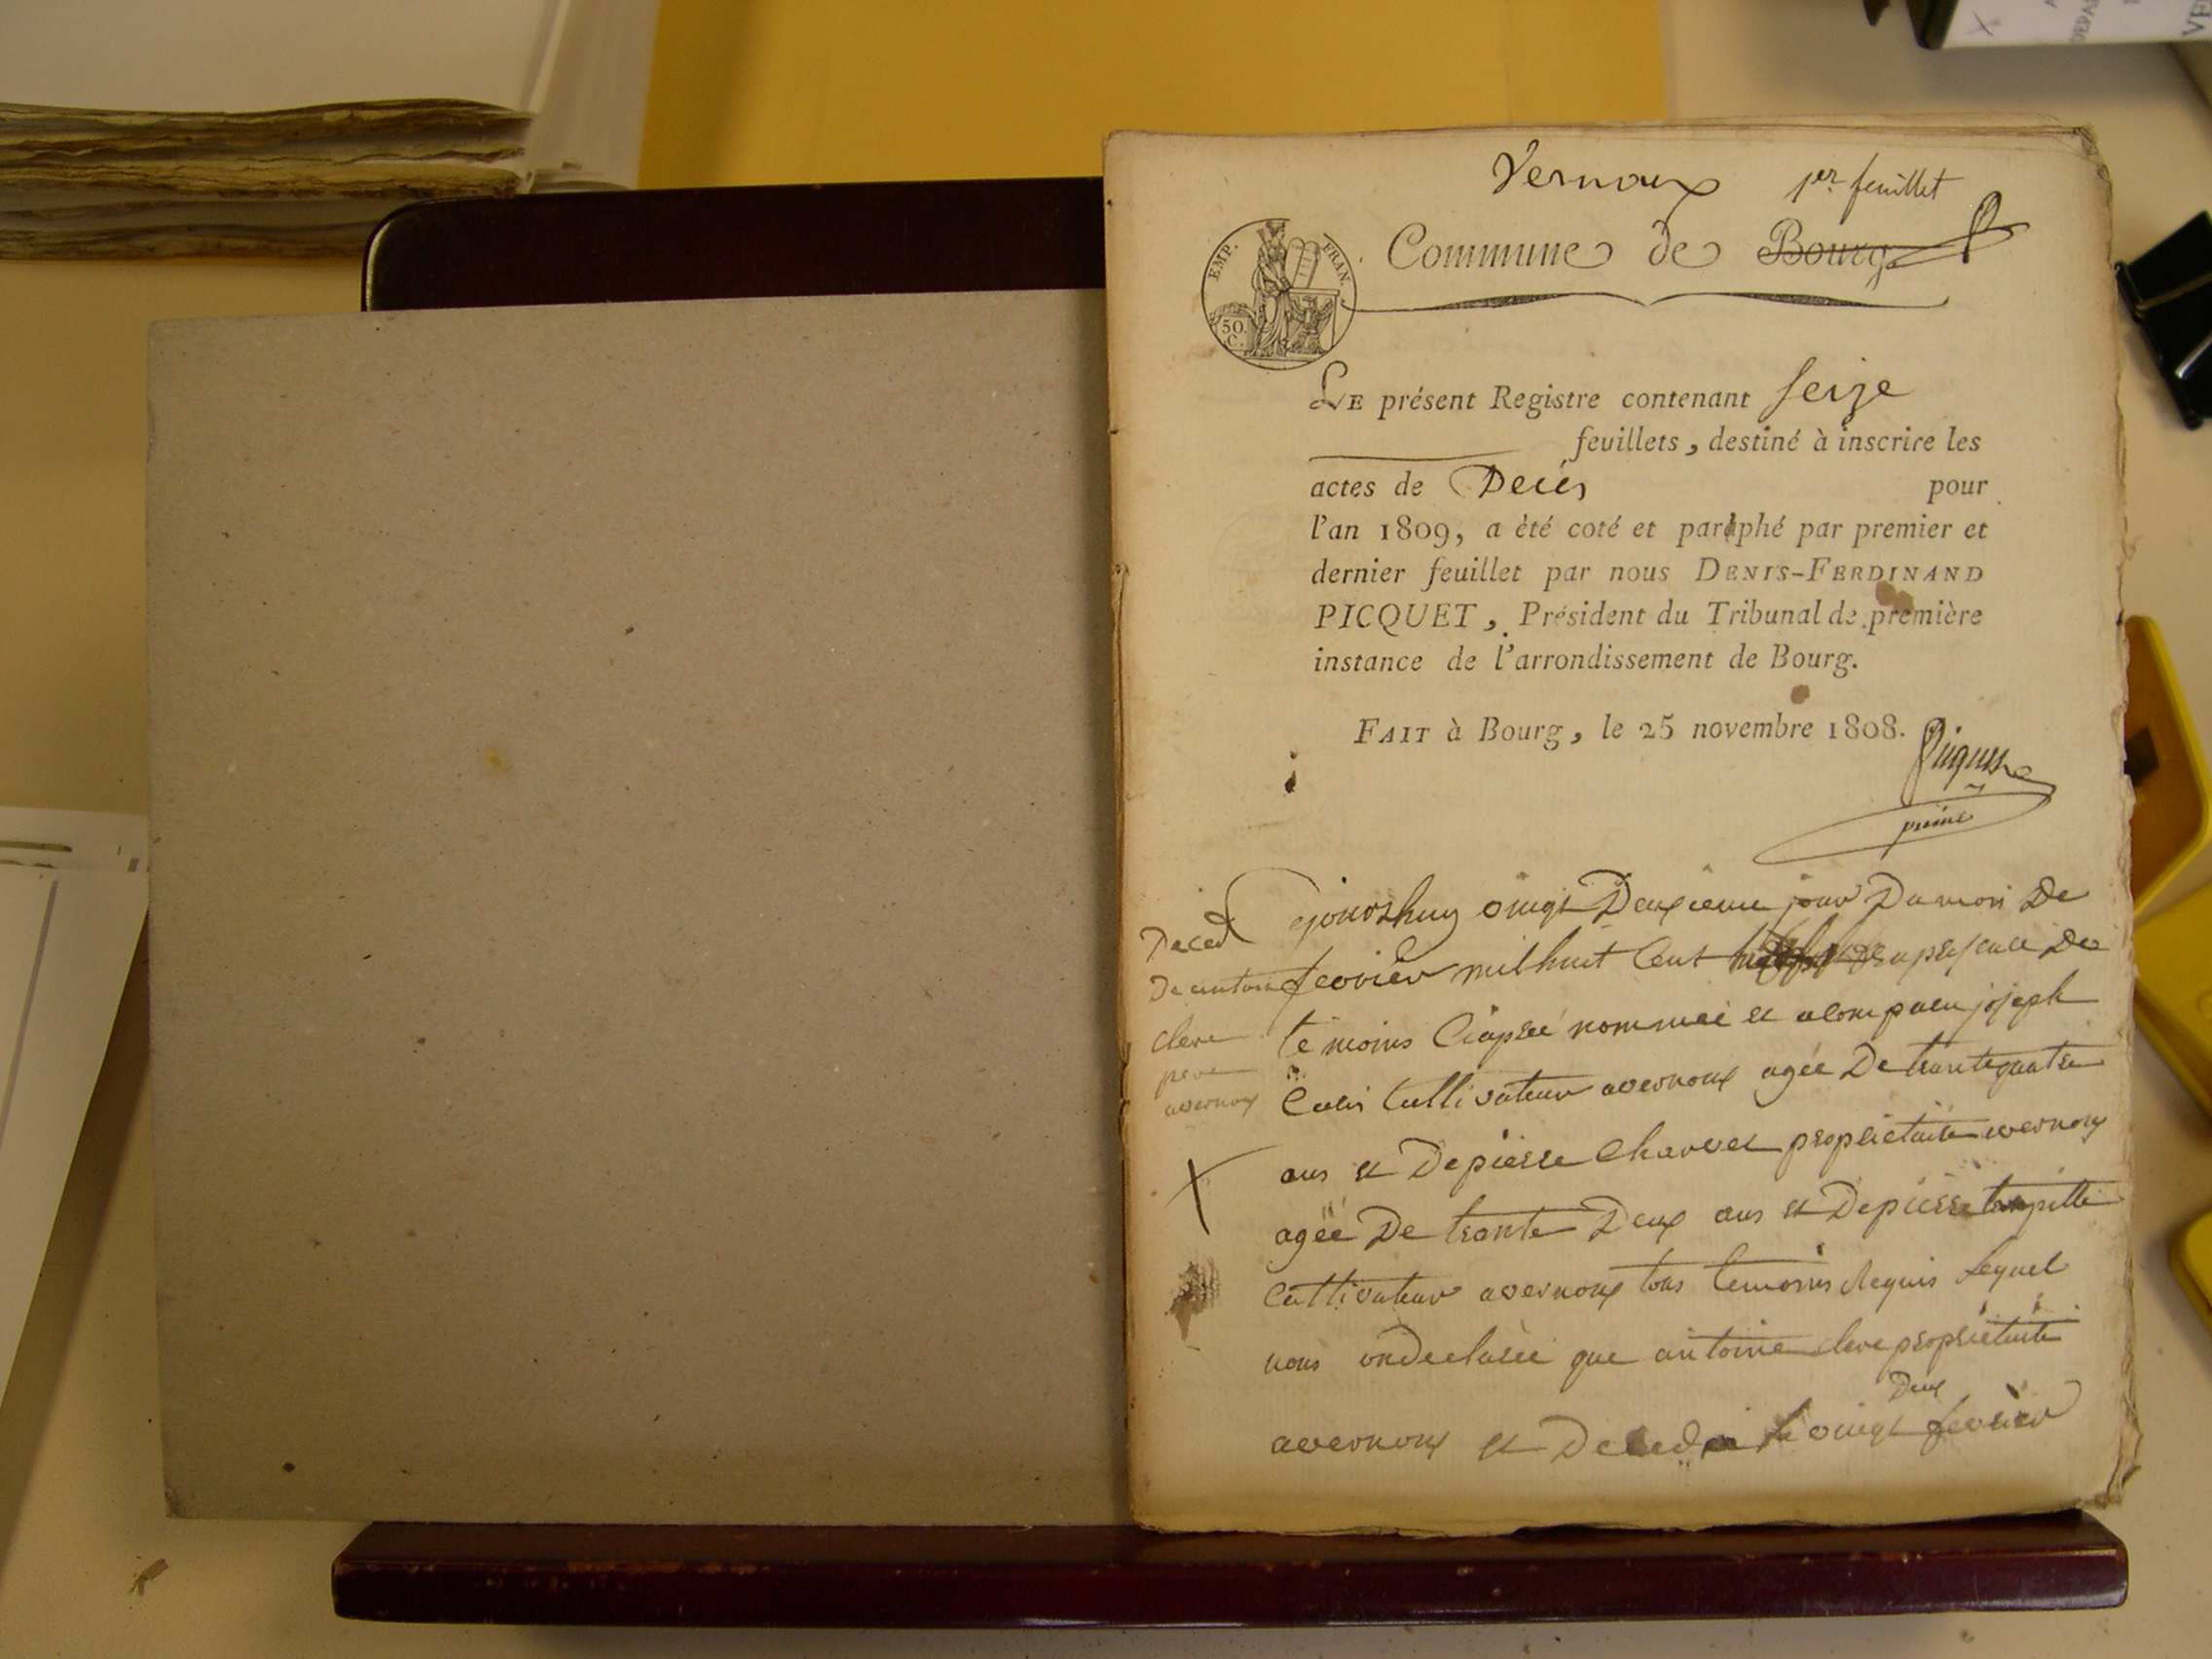 Vernoux 1er feuillet
EMP. FRAN.
50.
C.
Commune de Bourg
LE présent Registre contenant seize
feuillets, destiné à inscrire les
actes de Décés pour
l'an 1809, a èté coté et paraphé par premier et
dernier feuillet par nous DENIS-FERDINAND
PICQUET, Président du Tribunal de première
instance de l'arrondissement de Bourg.
FAIT à Bourg, le 25 novembre 1808.
Picquet
Deced
De antoine
clere
pere
avernoux
ejourdhuy vingt Deuxieme jour Du mois De
fevrier mil huit Cent en presence De
temoins Ciapréé nomméé et acompaeu joseph
Cultivateur avernoux agée De trante quatre
ans et De pierre Charvet propriétaire avernoux
agéé De trante Deux ans et De pierre
Cultivateur avernoux tous temoins Requis Lequel
nous on declaréé que antoine clere propriétaire
Deux
avernoux et Decedé le vingt fevrier